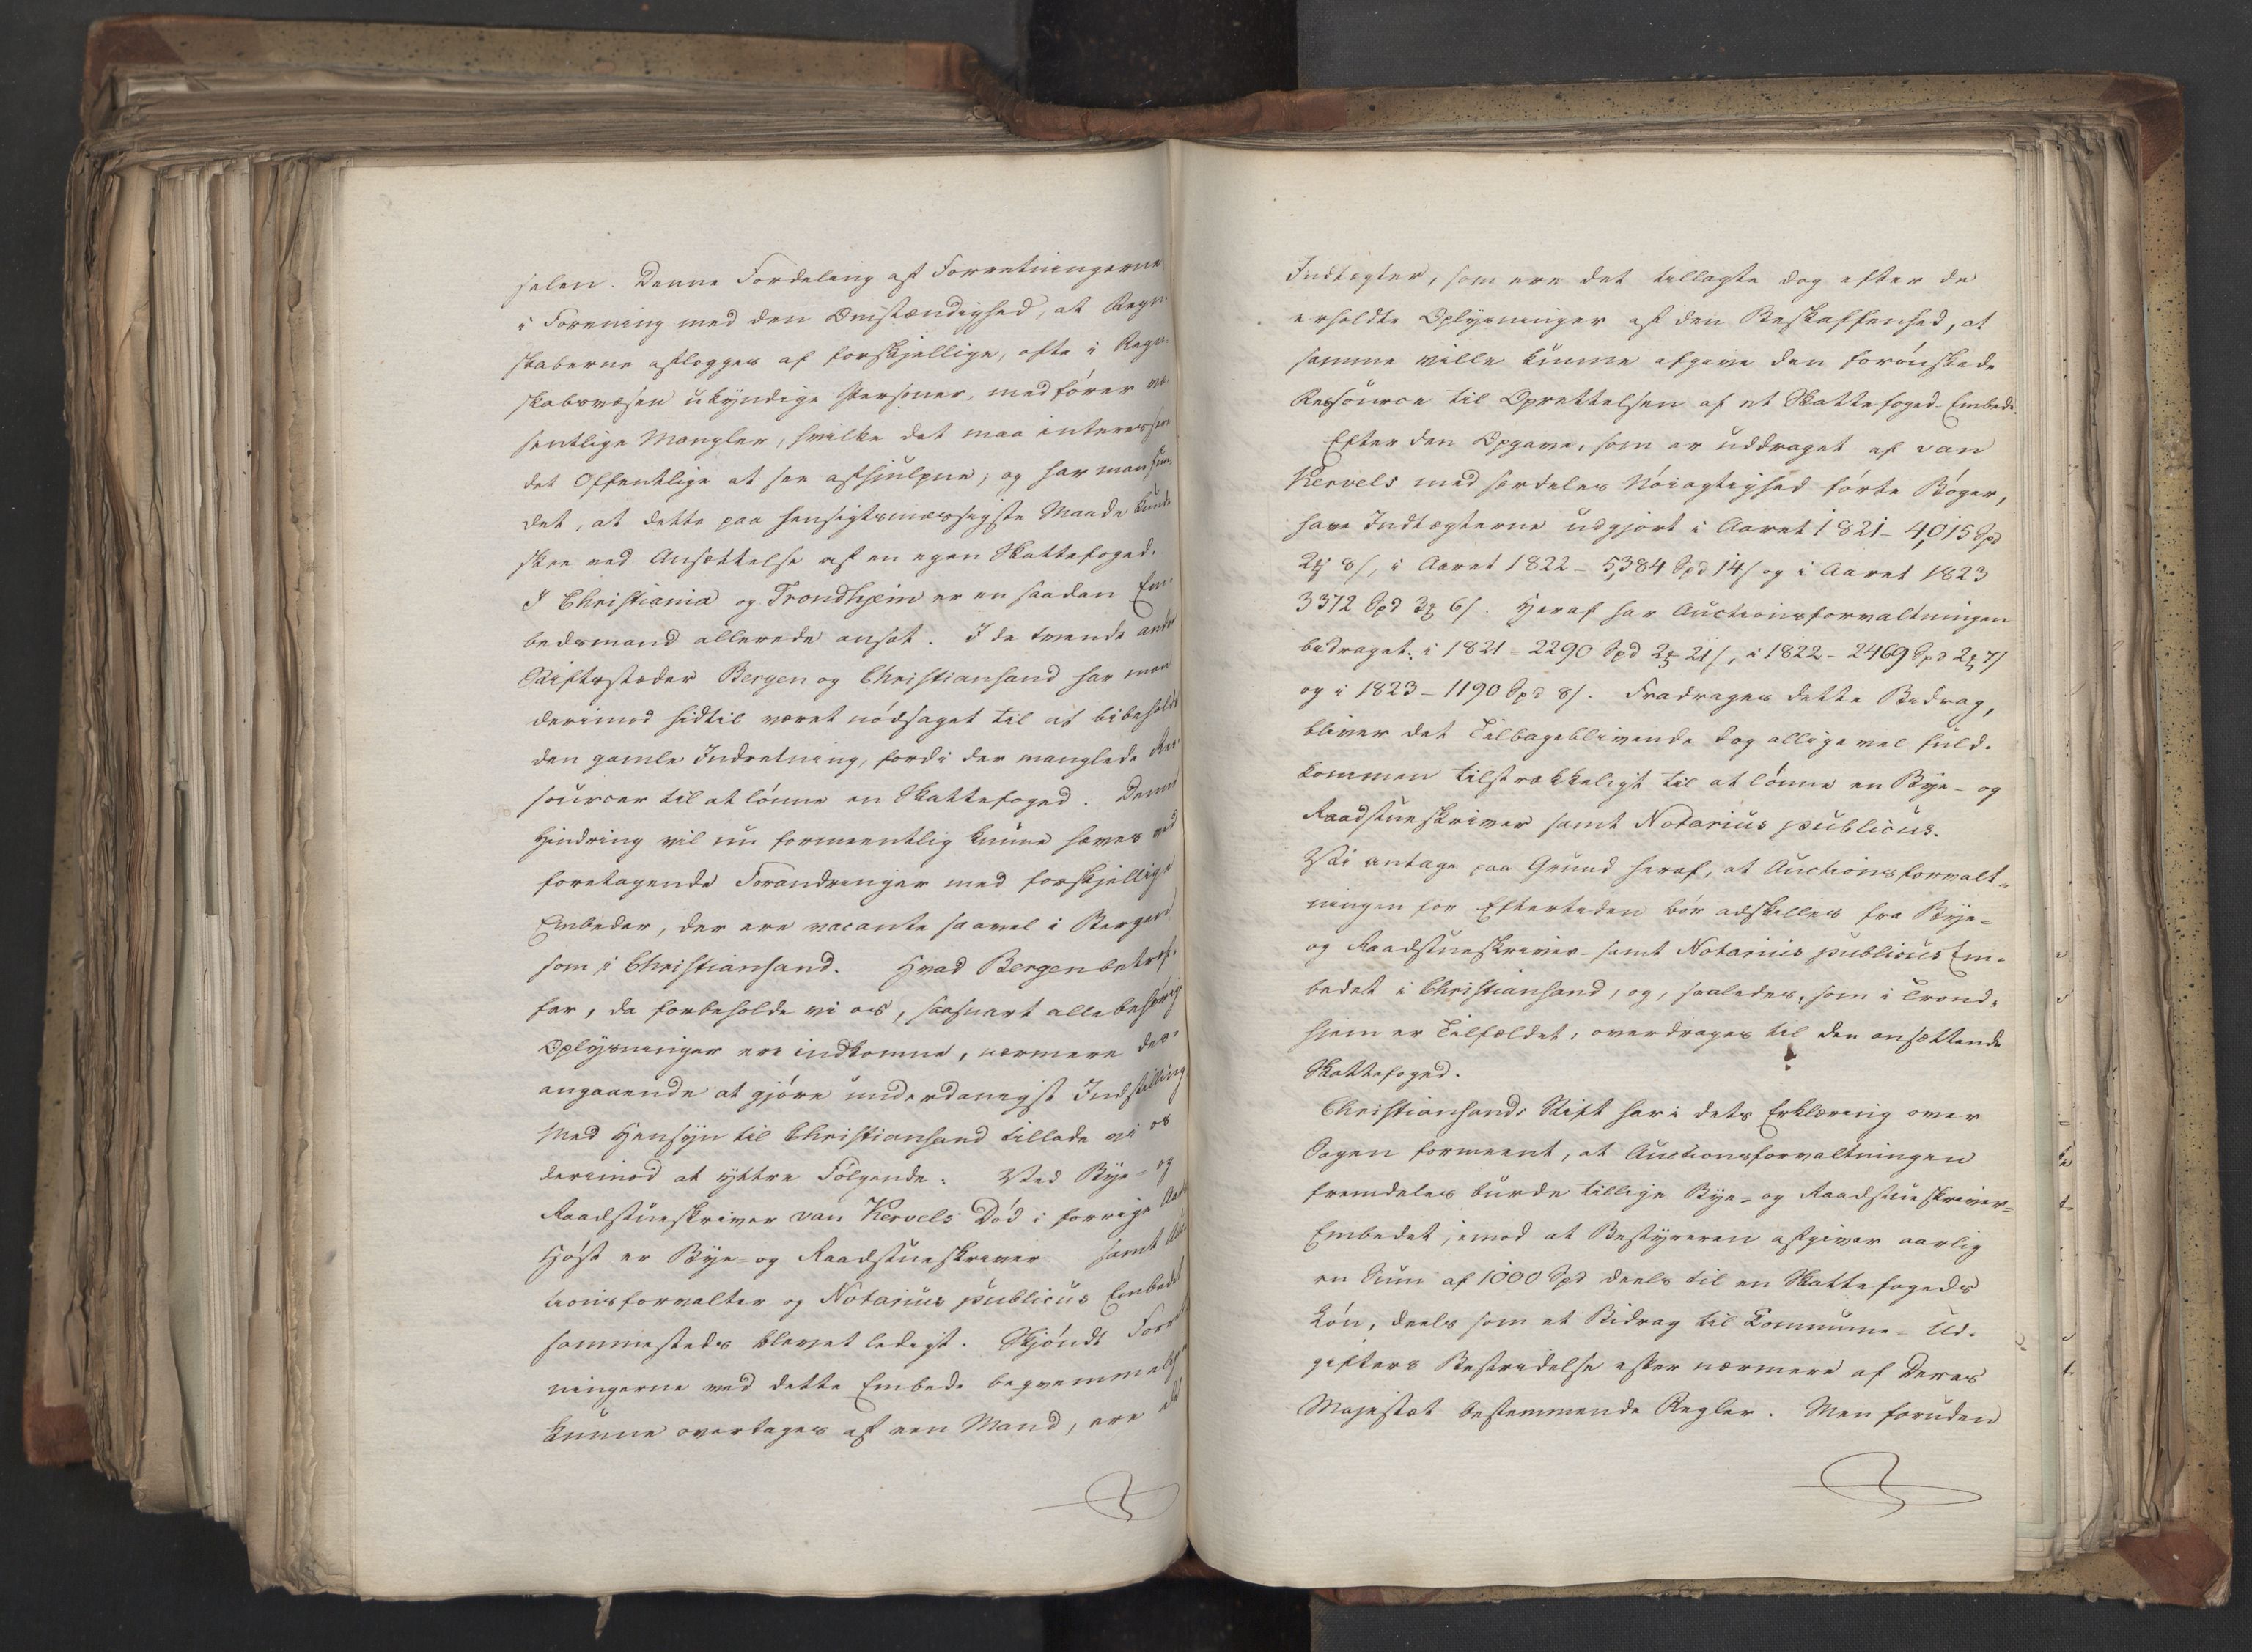 selen. Denne Fordeling af Forretningerne
i Forening med den Omstændighed, at Regn-
skaberne aflægges af forskjellige, ofte i Regn-
skabsvæsen ukyndige Personer, medfører væ-
sentlige Mangler, hvilke det maa interessere
det Offentlige at see afhjulpne; og har man fun-
det, at dette paa hensigtsmæssigste Maade kunde
skee ved Ansættelse af en egen Skattefoged.
I Christiania og Trondhjem er en saadan Em-
bedsmand allerede ansat. I de tvende andre
Stiftsstæder Bergen og Christiansand har man
derimod hidtil været nødsaget til at bibeholde
den gamle Indretning, fordi der manglede Res-
sourcer til at lønne en Skattefoged. Denne
Hindring vil nu formeentlig kunne hæves ved
foretagende Forandringer med forskjellige
Embeder, der ere vacante saavel i Bergen
som i Christiansand. Hvad Bergen betref-
fer, da forbeholde vi os, saasnart alle behørige
Oplysninger ere indkomne, nærmere des-
angaaende at gjøre underdanigst Indstilling
Med Hensyn til Christiansand tillade vi os
derimod at yttre Følgende: Ved Bye- og
Raadstueskriver van Kervels Død i forrige Aars
Høst er Bye- og Raadstueskriver samt Auc-
tionsforvalter og Notarius publicus Embedet
sammesteds blevet ledigt. Skjøndt Forret-
ningerne ved dette Embede beqvemmeligen
kunne overtages af een Mand, ere de
Indtægter, som ere det tillagte dog efter de
erholdte Oplysninger af den Beskaffenhed, at
samme ville kunne afgive den forønskede
Ressource til Oprettelsen af et Skattefoged-Embede.
Efter den Opgave, som er uddraget af van
Kervels med særdeles Nøiagtighed førte Bøger,
have Indtægterne udgjort i Aaret 1821 - 4,015 Spd
2 ₰ 8 /, i Aaret 1822 - 5,384 Spd 14 / og i Aaret 1823
3372 Spd 3 ₰ 6 /. Heraf har Auctionsforvaltningen
bidraget: i 1821 - 2290 Spd 2 ₰ 21 /, i 1822 - 2469 Spd 2 ₰ 7 /
og i 1823 - 1190 Spd 8 /. Fradrages dette Bidrag,
bliver det Tilbageblivende dog alligevel fuld-
kommen tilstrækkeligt til at lønne en Bye- og
Raadstueskriver samt Notarius publicus.
Vi antage paa Grund heraf, at Auctionsforvalt-
ningen for Eftertiden bør adskilles fra Bye-
og Raadstueskriver- samt Notarius publicus Em-
bedet i Christiansand, og, saaledes, som i Trond-
hjem er Tilfældet, overdrages til den ansættende
Skattefoged.
Christiansands Stift har i dets Erklæring over
Sagen formeent, at Auctionsforvaltningen
fremdeles burde tillige Bye- og Raadstueskriver-
Embedet, imod at Bestyreren afgiver aarlig
en Sum af 1000 Spd deels til en Skattefogeds
Løn, deels som et Bidrag til Commune-Ud-
gifters Bestridelse efter nærmere af Deres
Majestæt bestemmende Regler. Men foruden